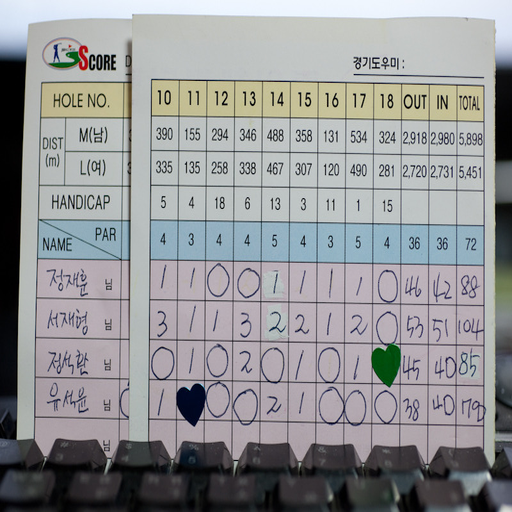 SCORE
경기도우미 :
HOLE NO. 10 11 12 13 14 15 16 17 18 OUT IN TOTAL
DIST (m) M(남) 390 155 294 346 488 358 131 534 324 2,918 2,980 5,898
L(여) 335 135 258 338 467 307 120 490 281 2,720 2,731 5,451
HANDICAP 5 4 18 6 13 3 11 1 15
NAME PAR 4 3 4 4 5 4 3 5 4 36 36 72
정재훈 님 1 1 0 0 1 1 1 1 0 46 42 88
서재형 님 3 1 1 3 2 2 1 2 0 53 51 104
정석환 님 0 1 0 2 0 1 0 1 45 40 85
유석윤 님 1 0 0 2 1 0 0 0 38 40 79
님